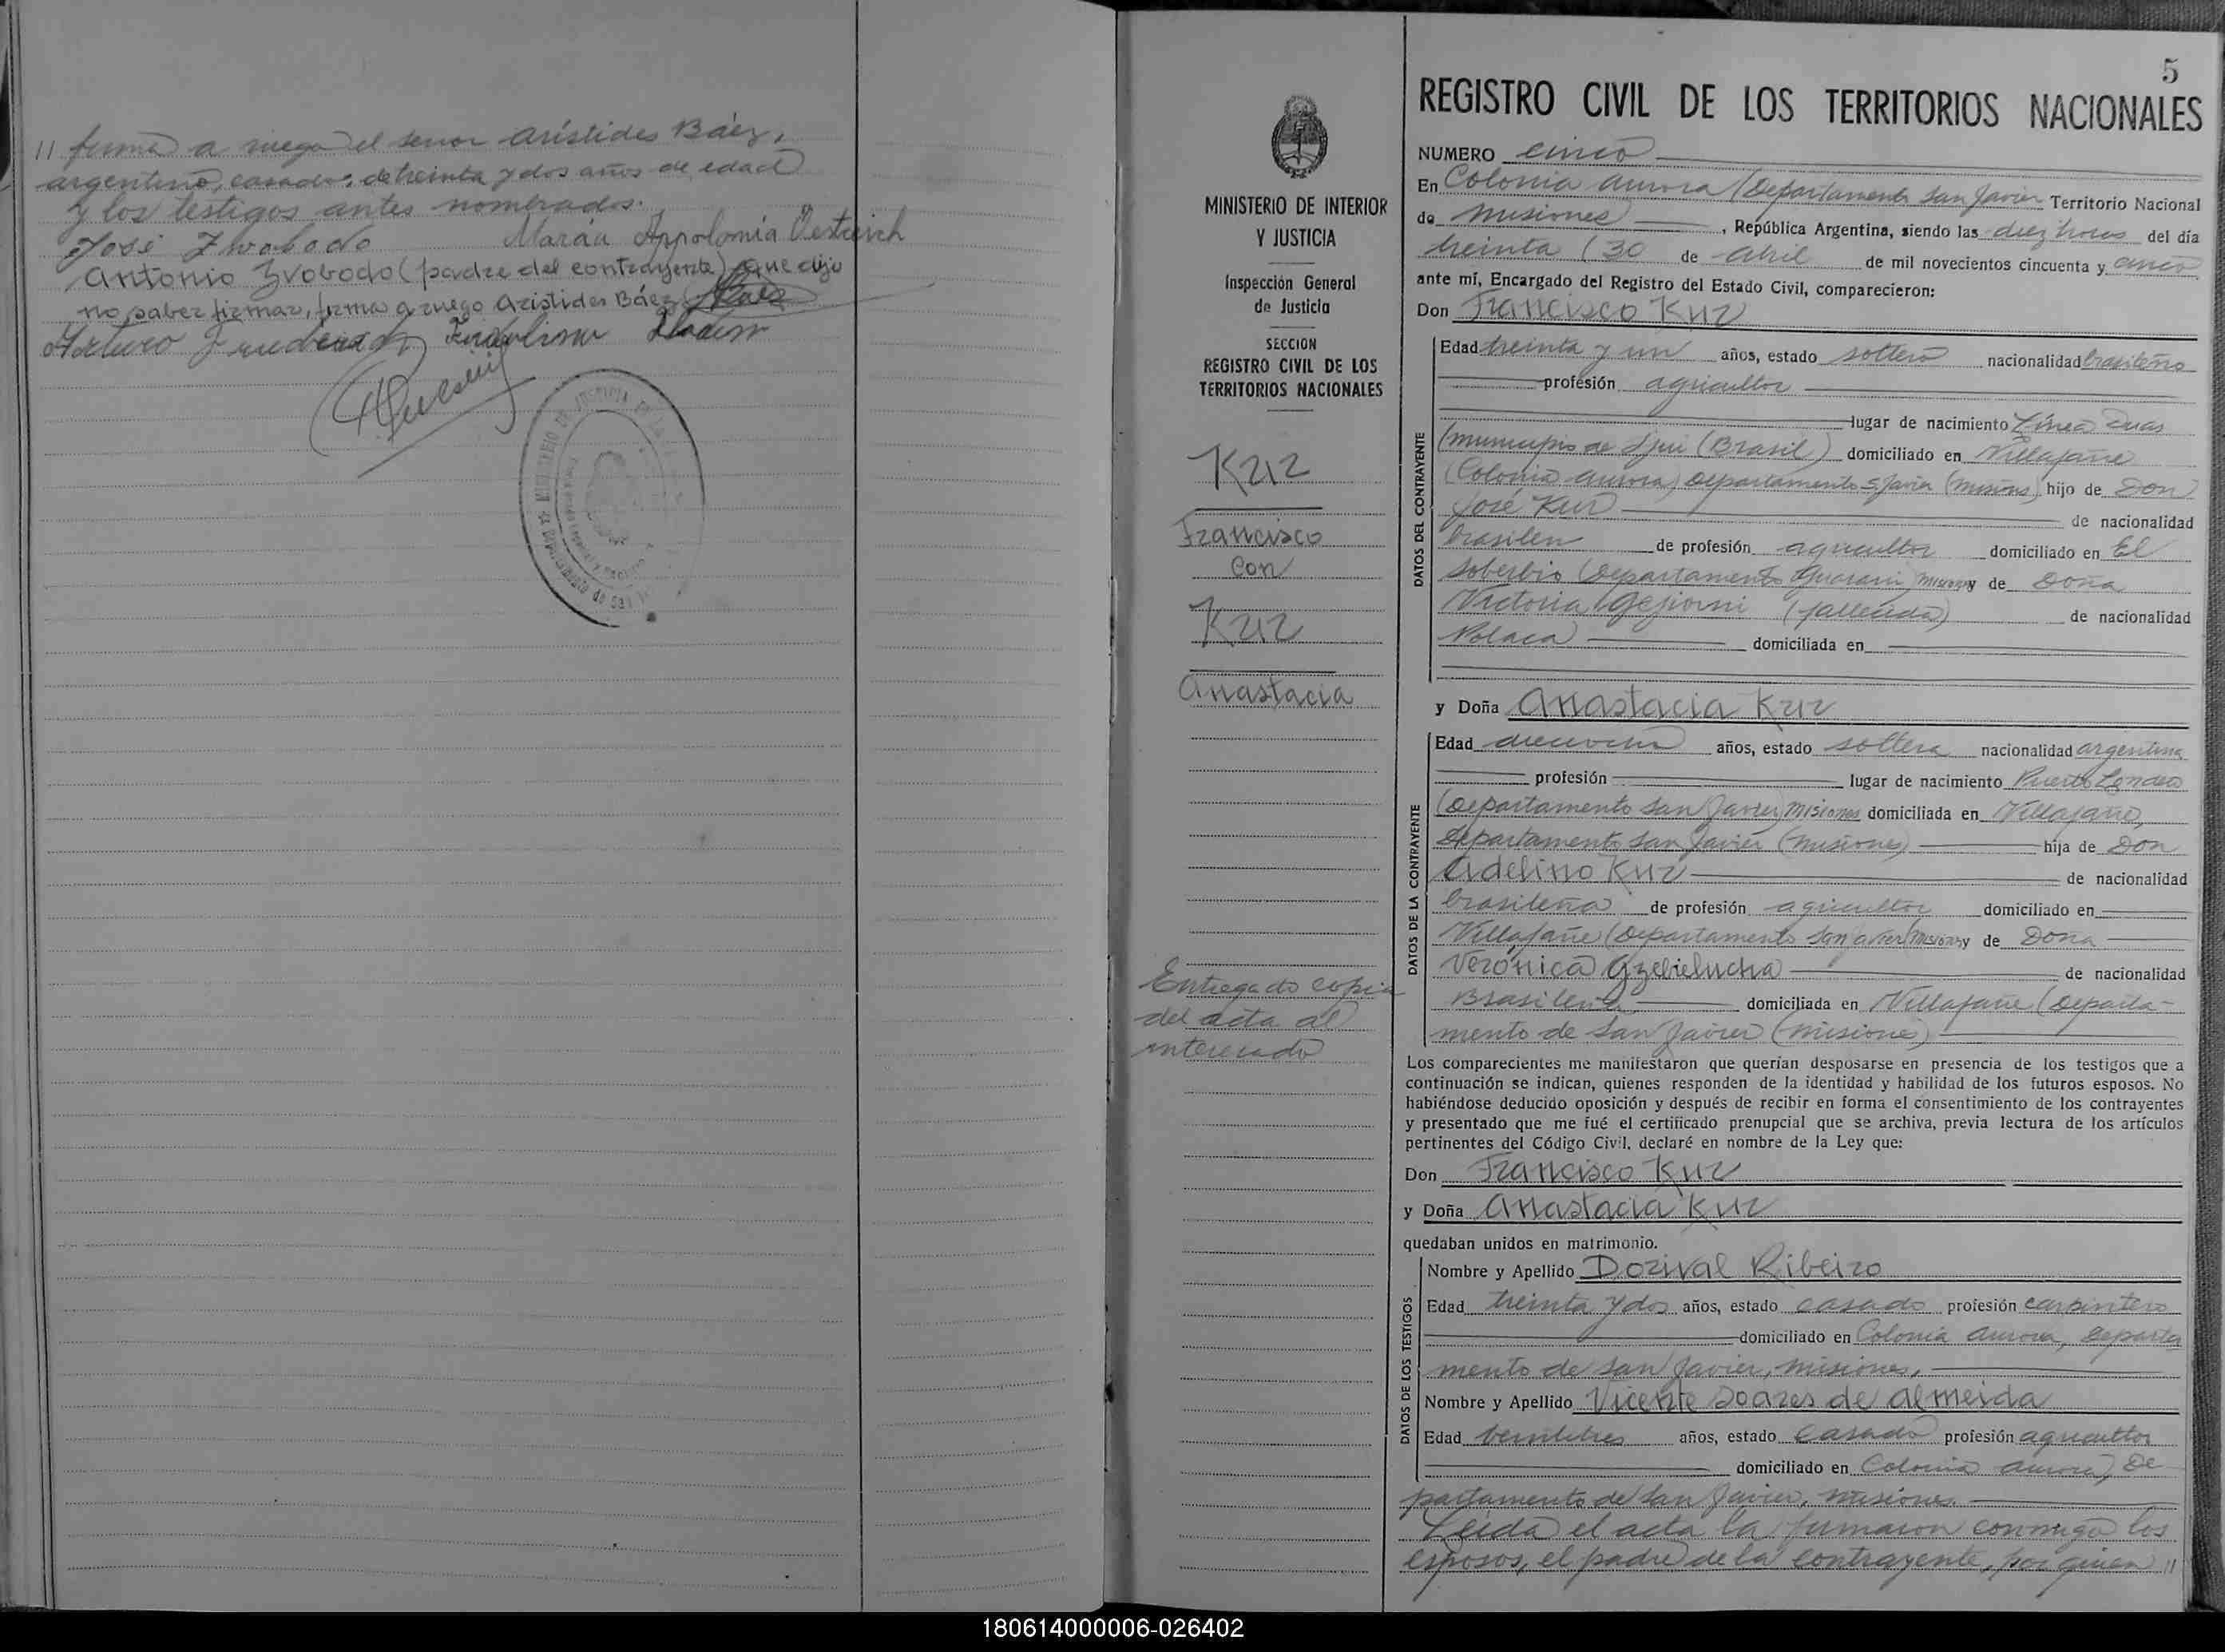 // firma a ruego el señor Arístides Báez,
argentino, casado, de treinta y dos años de edad
y los testigos antes nombrados.
José Zwobodo María Appolonia Oestreich
Antonio Zvobodo (padre del contrayente) que dijo
no saber firmar, firma a ruego Aristides Báez
Arturo
MINISTERIO DE INTERIOR
Y JUSTICIA
Inspección General
de Justicia
SECCION
REGISTRO CIVIL DE LOS
TERRITORIOS NACIONALES
Kuz
Francisco
Con
Kuz
Anastacia
Entregado copia
del acta al
interesado
5
REGISTRO CIVIL DE LOS TERRITORIOS NACIONALES
NUMERO cinco
En Colonia Aurora (Departamento San Javier Territorio Nacional
de Misiones, República Argentina, siendo las diez horas del día
treinta (30 de Abril de mil novecientos cincuenta y cinco
ante mí, Encargado del Registro del Estado Civil, comparecieron:
Don Francisco Kuz
DATOS DEL CONTRAYENTE
Edad treinta y un años, estado soltero nacionalidad brasileño
profesión agricultor
lugar de nacimiento Línea Duas
(municipio de Ijui (Brasil) domiciliado en Villafañe
(Colonia Aurora) Departamento S. Javier (Misiones) hijo de Don
José Kuz de nacionalidad
brasilen de profesión agricultor domiciliado en El
Soberbio (Departamento Guaraní Misiones y de Doña
Victoria (fallecida) de nacionalidad
Polaca domiciliada en
y Doña Anastacia Kuz
DATOS DE LA CONTRAYENTE
Edad dieciocho años, estado soltera nacionalidad argentina
profesión lugar de nacimiento Puerto Londero
(Departamento San Javier) Misiones domiciliada en Villafañe,
Departamento San Javier (Misiones) hija de Don
Adelino Kuz de nacionalidad
brasileña de profesión agricultor domiciliado en
Villafañe (Departamento San Javier) Misiones y de Doña
Verónica Gzebielucha de nacionalidad
Brasilena domiciliada en Villafañe (Departa-
mento de San Javier (Misiones)
Los comparecientes me manifestaron que querían desposarse en presencia de los testigos que a
continuación se indican, quienes responden de la identidad y habilidad de los futuros esposos. No
habiéndose deducido oposición y después de recibir en forma el consentimiento de los contrayentes
y presentado que me fué el certificado prenupcial que se archiva, previa lectura de los artículos
pertinentes del Código Civil, declaré en nombre de la Ley que:
Don Francisco Kuz
y Doña Anastacia Kuz
quedaban unidos en matrimonio.
DATOS DE LOS TESTIGOS
Nombre y Apellido Dorival Ribeiro
Edad treinta y dos años, estado casado profesión carpintero
domiciliado en Colonia Aurora, Departa
mento de San Javier, Misiones,
Nombre y Apellido Vicente Soares de Almeida
Edad veintitres años, estado casado profesión agricultor
domiciliado en Colonia Aurora, De
partamento de San Javier, Misiones.
Leida el acta la firmaron conmigo los
esposos, el padre de la contrayente, por quien //
180614000006-026402